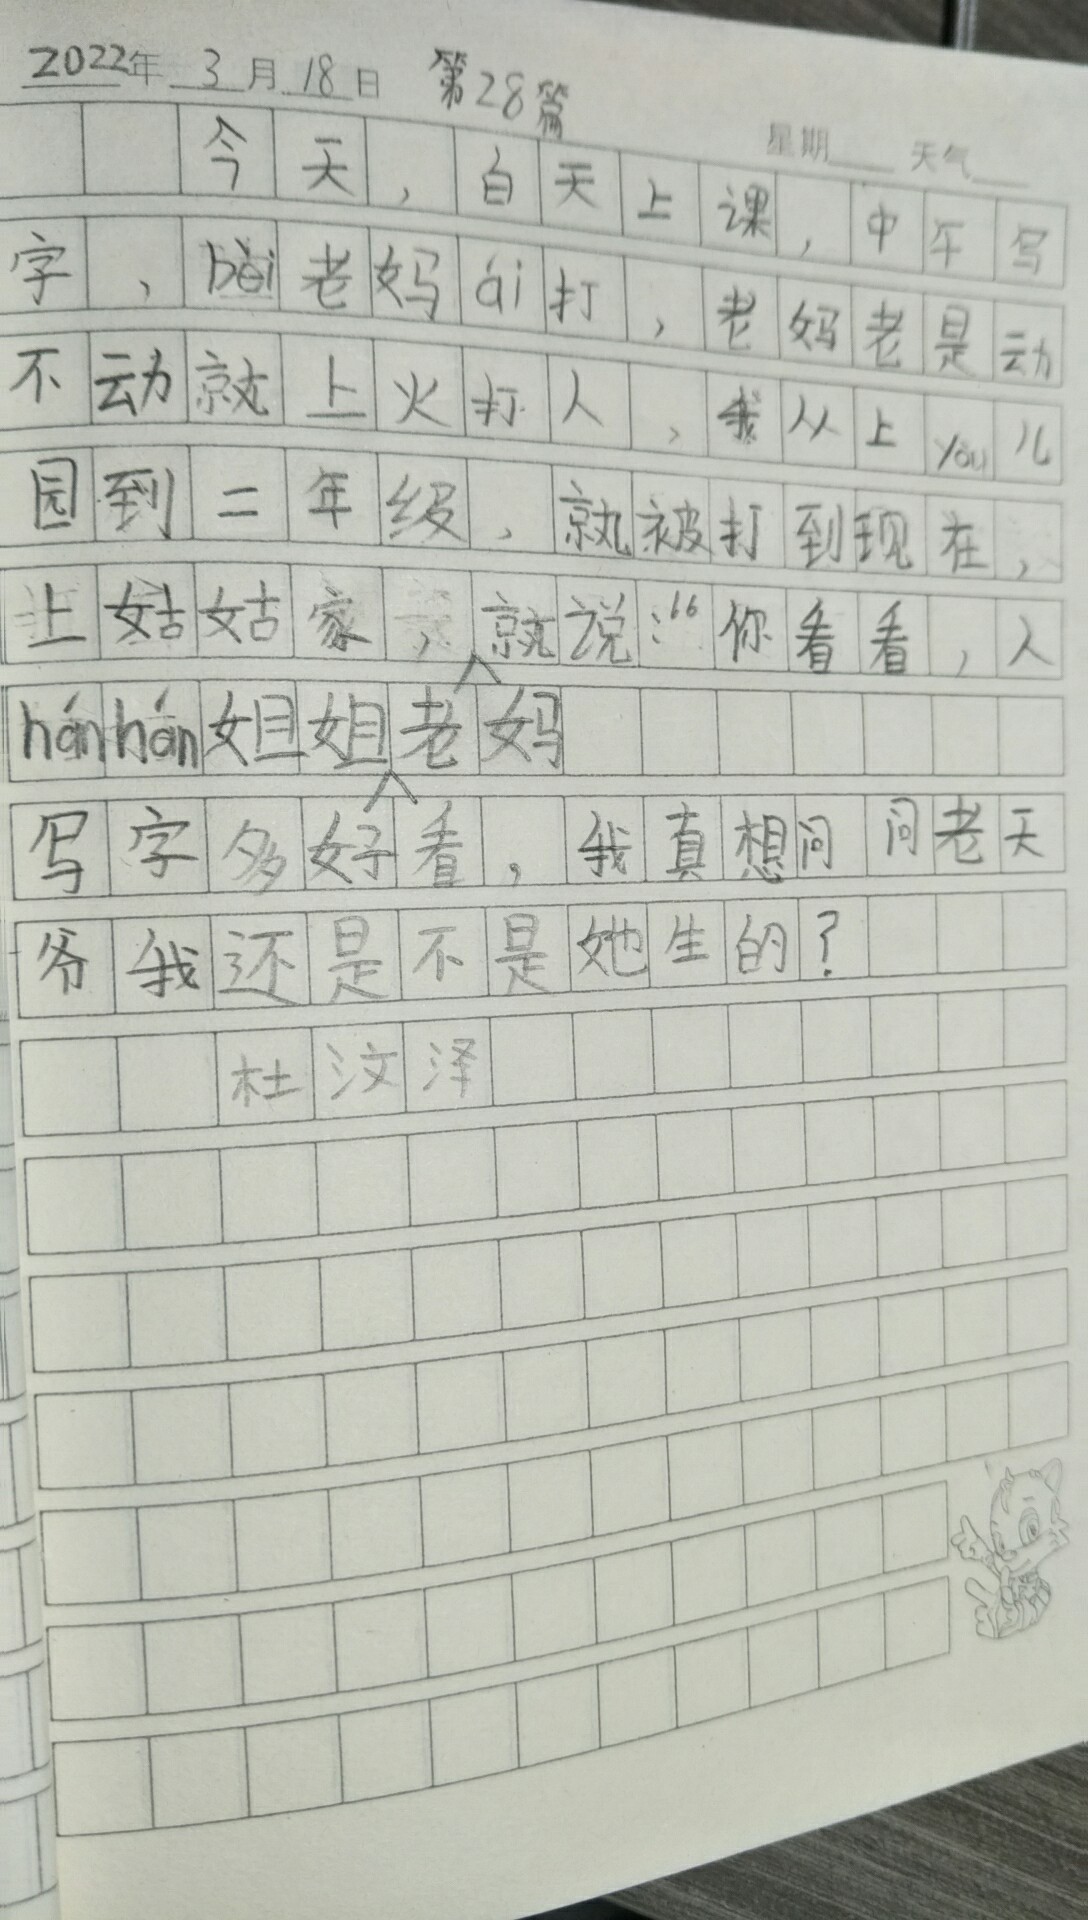 2022年 3月18日 第28篇
星期 天气
今天，白天上课，中午写
字，bèi老妈ái打，老妈老是动
不动就上火打人，我从上yòu儿
园到二年级，就被打到现在，
上姑姑家，就说：“你看看，人
hánhán姐姐老妈
写字多好看，我真想问问老天
爷我还是不是她生的？
杜汶泽